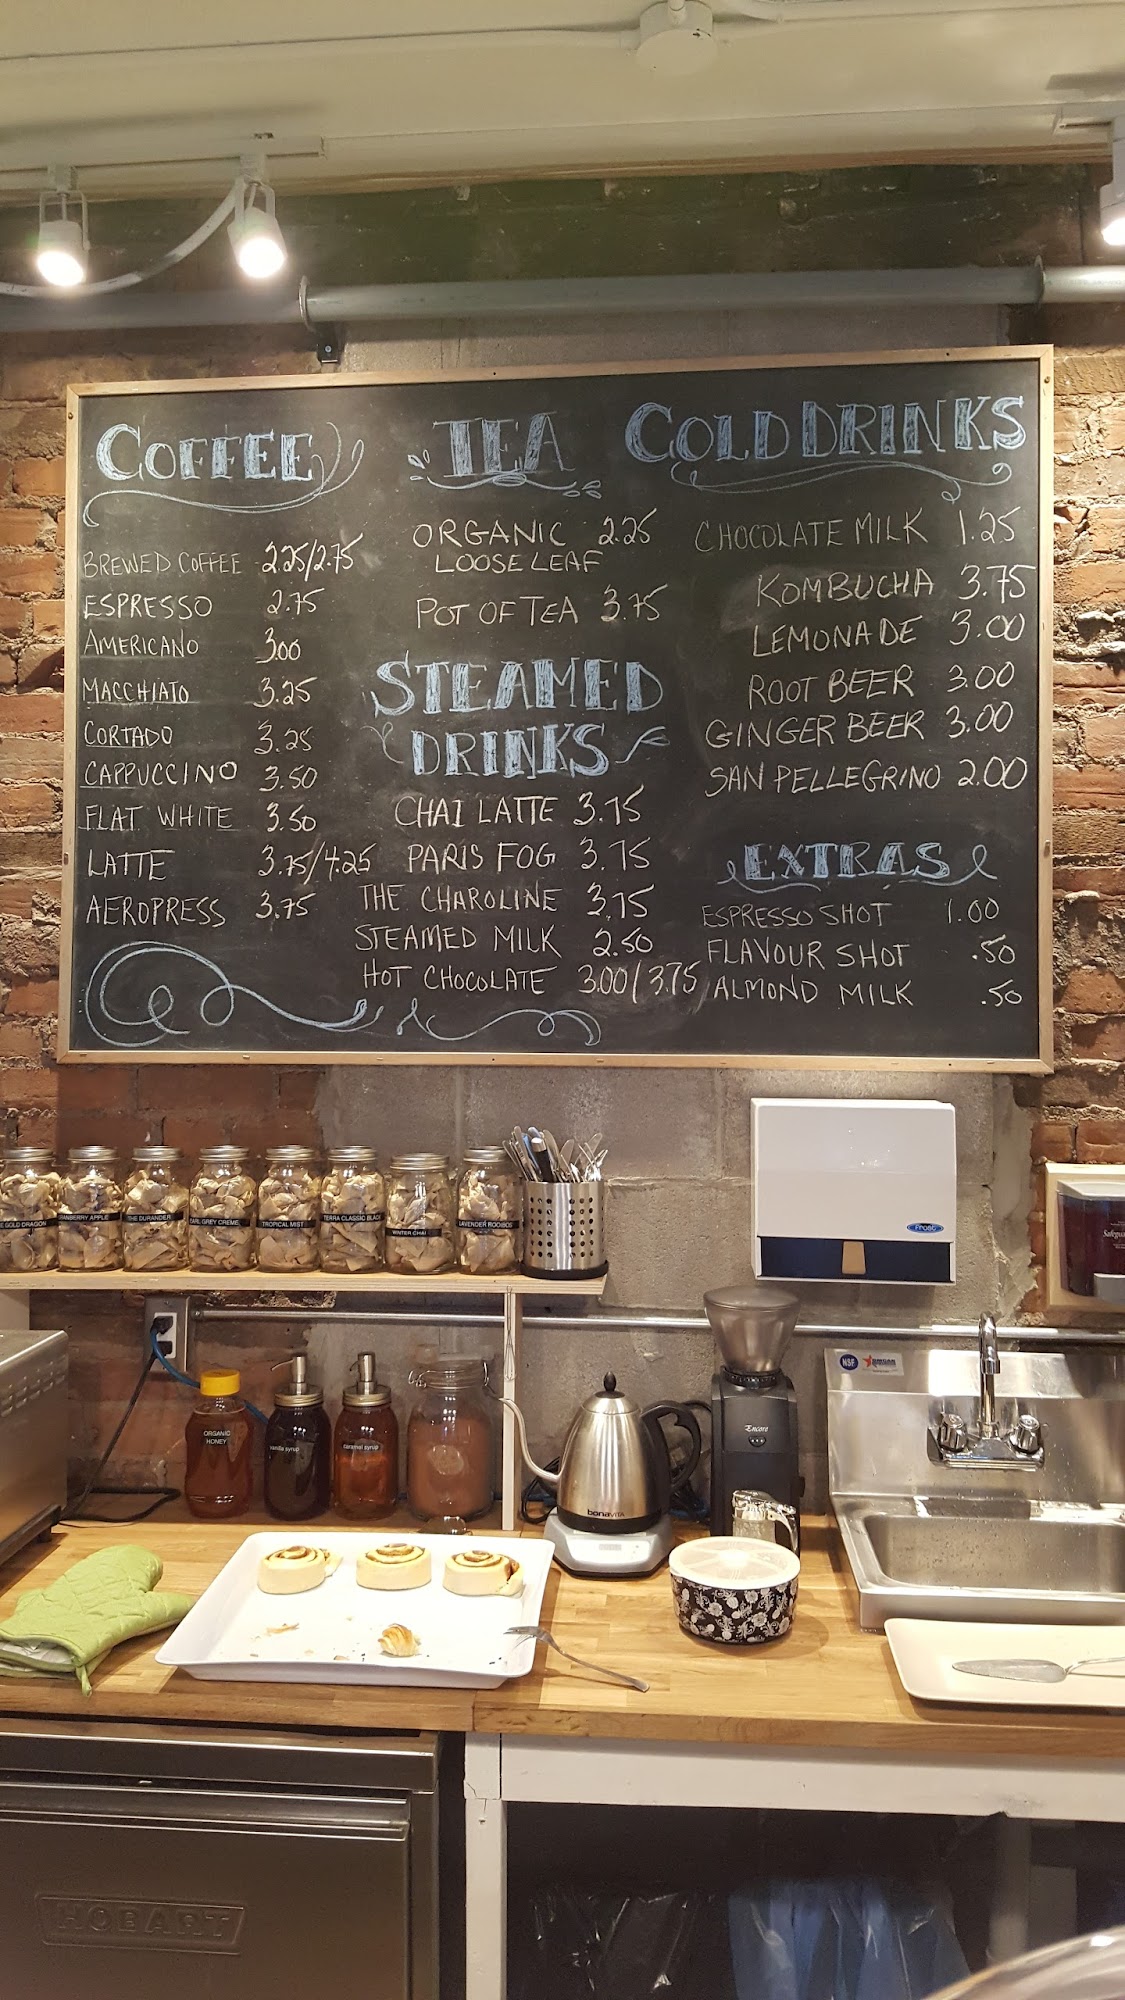 COFFEE
BREWED COFFEE 2.25/2.75
ESPRESSO 2.75
AMERICANO 3.00
MACCHIATO 3.25
CORTADO 3.25
CAPPUCCINO 3.50
FLAT WHITE 3.50
LATTE 3.75/4.25
AEROPRESS 3.75
TEA
ORGANIC 2.25
LOOSE LEAF
POT OF TEA 3.75
STEAMED
DRINKS
CHAI LATTE 3.75
PARIS FOG 3.75
THE CHAROLINE 3.75
STEAMED MILK 2.50
HOT CHOCOLATE 3.00/3.75
COLD DRINKS
CHOCOLATE MILK 1.25
KOMBUCHA 3.75
LEMONADE 3.00
ROOT BEER 3.00
GINGER BEER 3.00
SAN PELLEGRINO 2.00
EXTRAS
ESPRESSO SHOT 1.00
FLAVOUR SHOT .50
ALMOND MILK .50
GOLD DRAGON
CRANBERRY APPLE
THE DURANDER
EARL GREY CREME
TROPICAL MIST
TERRA CLASSIC BLACK
WINTER CHAI
LAVENDER ROOIBOS
Frost
ORGANIC
HONEY
vanilla syrup
caramel syrup
bonaVITA
Encore
NSF
HOBART